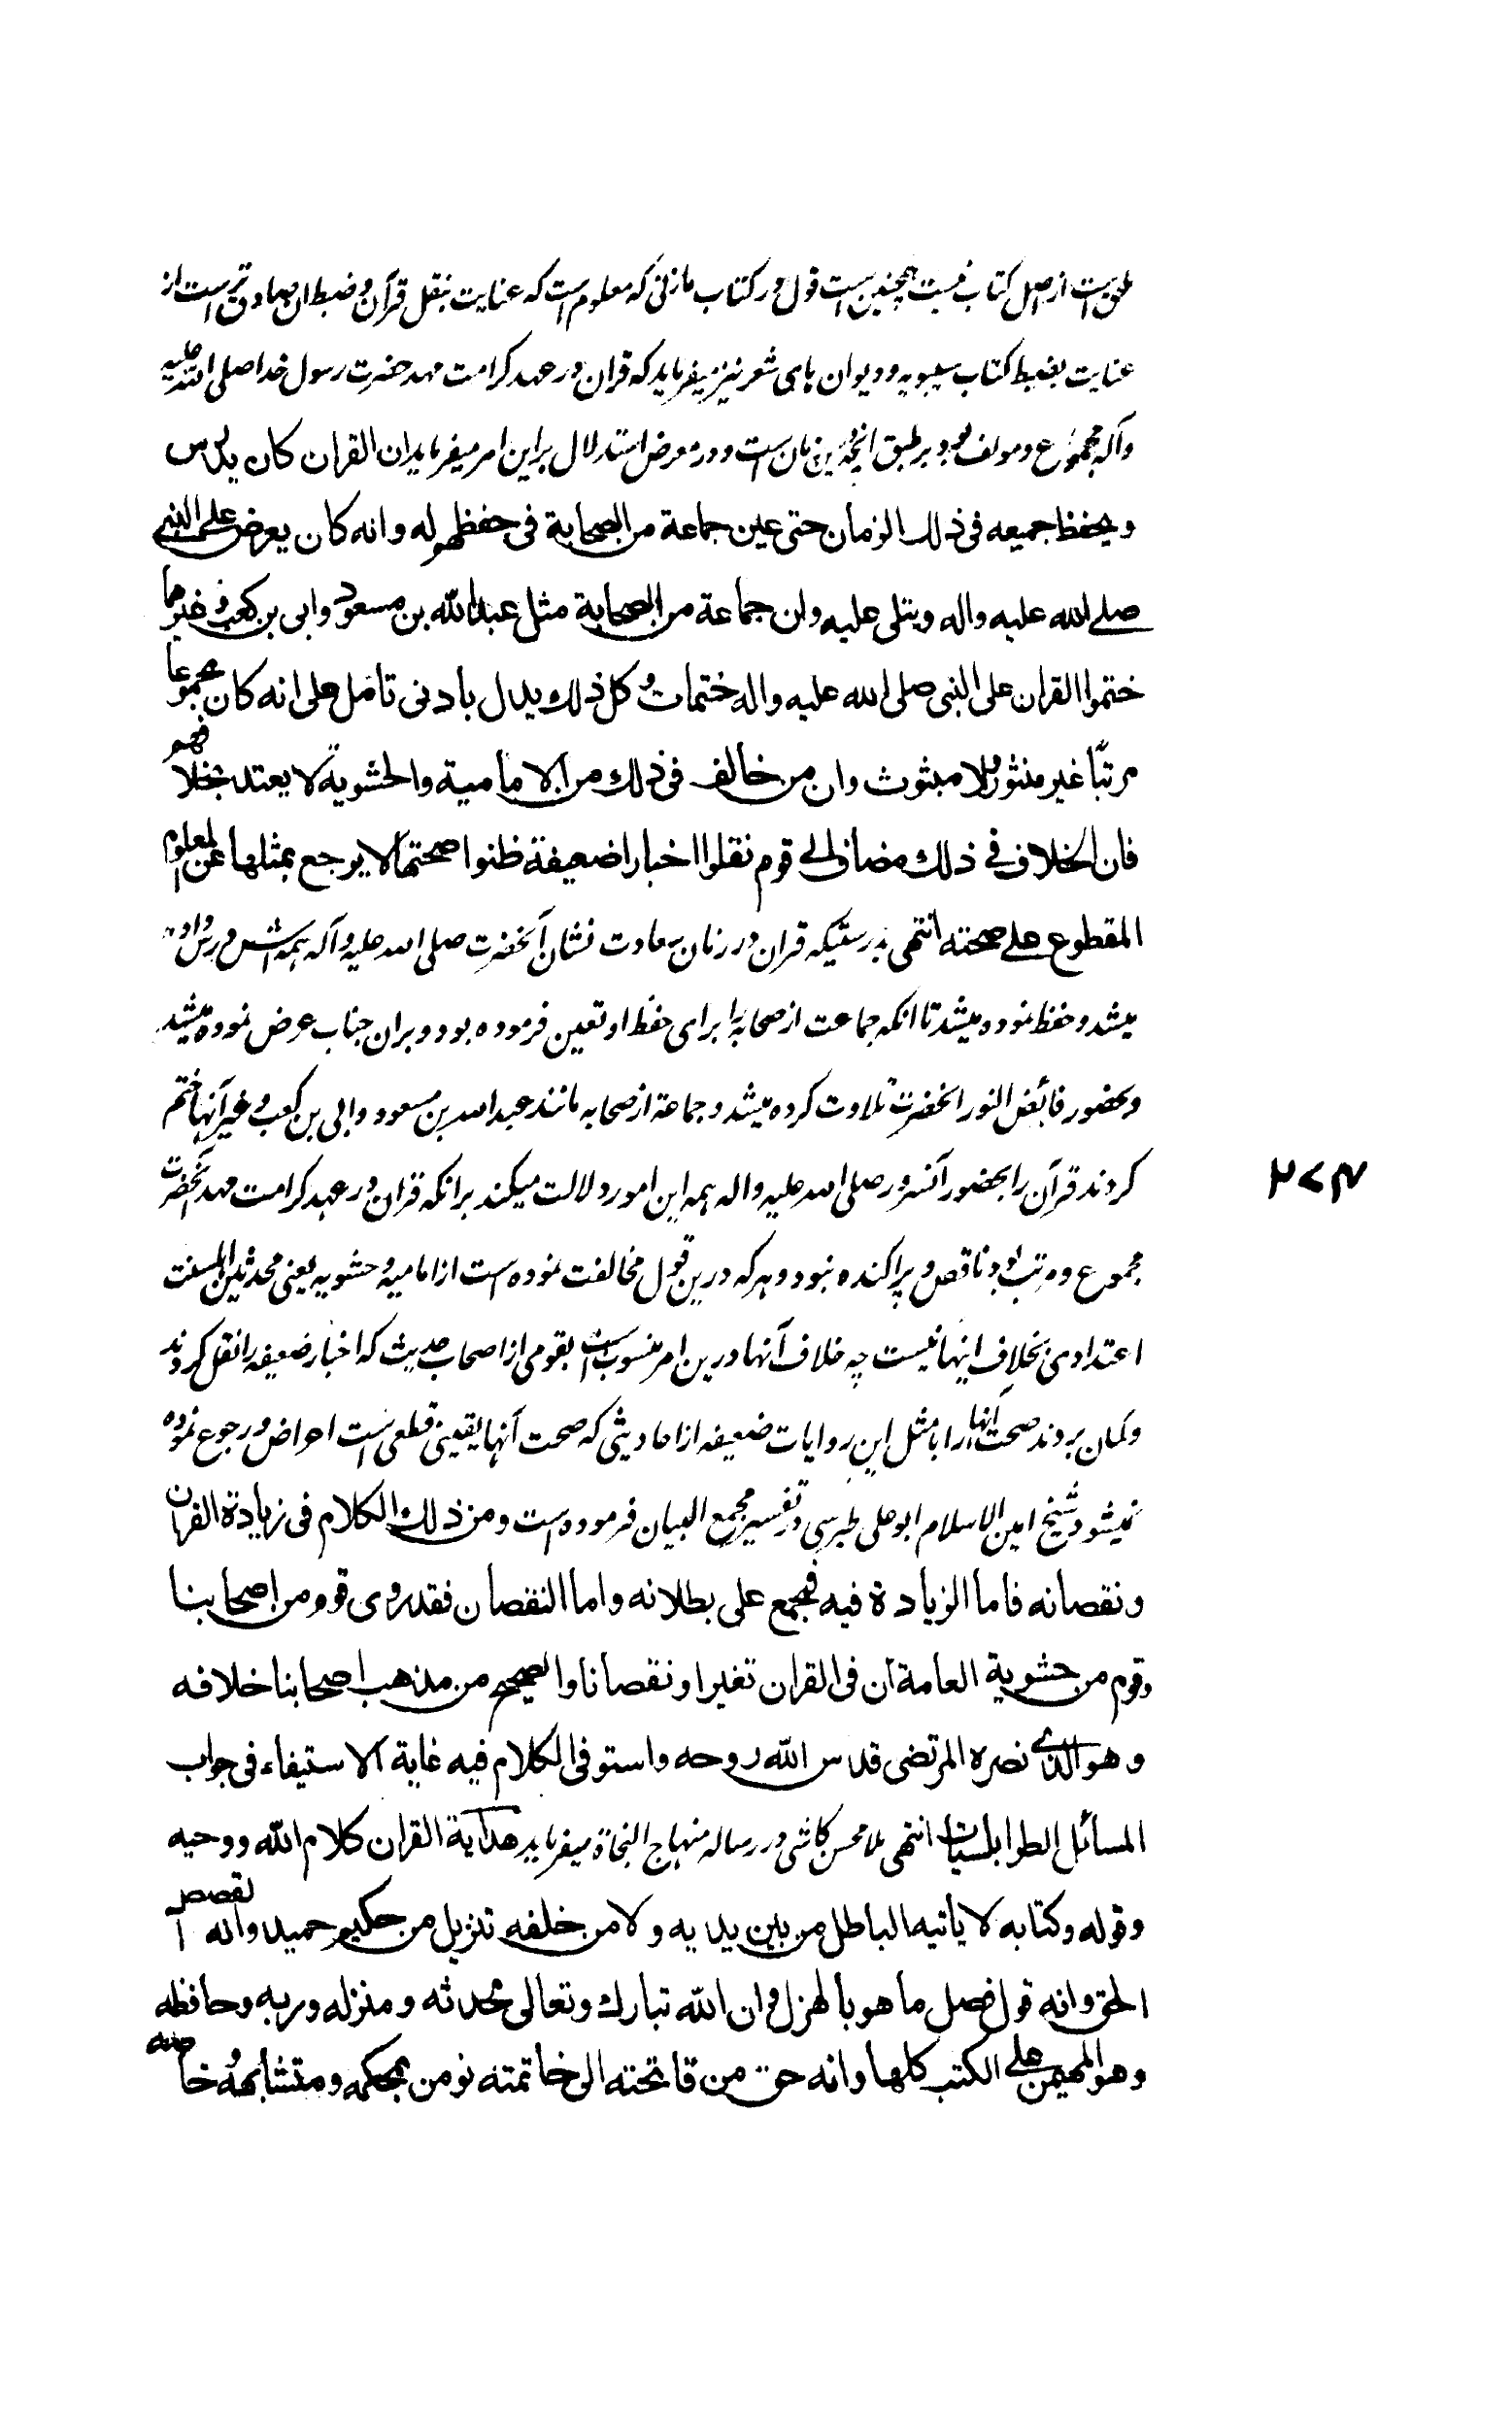 ملحق است از اصل کتاب نیست همچنین است قول در کتاب مازنی که معلوم است که عنایت بنقل قرآن و ضبط ان صادق تر است از
عنایت بضبط کتاب سیبویه و دیوان های شعر نیز میفرماید که قران در عهد کرامت مهد حضرت رسول خدا صلی الله علیه
وآله مجموع و مولف بود بر طبق انچه درین زمان است و در معرض استدلال بر این امر میفرماید ان القران کان یدرس
ویحفظ جمیعه فی ذلك الزمان حتی عین جماعة من الصحابة فی حفظهم له وانه کان یعرض علی النبی
صلے الله علیه واله ویتلی علیه وان جماعة من الصحابة مثل عبدالله بن مسعود وابی بن کعب وغیرهما
ختموا القران علی النبی صلی الله علیه واله ختمات وکل ذلك یدل بادنی تامل علی انه کان مجموعا
مرتبّا غیر منثور ولا مبثوث وان من خالف فی ذلك من الامامیة والحشویة لا یعتد بخلافهم
فان الخلاف فے ذلك مضاف الی قوم نقلوا اخبارا ضعیفة ظنوا صحتها لا یرجع بمثلها عن المعلوم
المقطوع علے صحته انتهی بدرستیکه قران در زمان سعادت نشان آنحضرت صلی الله علیه وآله همه اش درس داده
میشد و حفظ نموده میشد تا انکه جماعت از صحابه را برای حفظ او تعین فرموده بود و بران جناب عرض نموده میشد
و بحضور فائض النور انحضرت تلاوت کرده میشد و جماعة از صحابه مانند عبدالله بن مسعود وابی بن کعب و غیر آنها ختم
کردند قرآن را بحضور آنسرور صلی الله علیه واله همه این امور دلالت میکند برانکه قران در عهد کرامت مهد آنحضرت
مجموع و مرتب بود ناقص و پراکنده نبود و هر که درین قول مخالفت نموده است از امامیه و حشویه یعنی محدثین اهلسنت
اعتدادی بخلاف اینها نیست چه خلاف آنها درین امر منسوب است بقومی از اصحاب حدیث که اخبار ضعیفه را نقل کردند
وگمان بردند صحت انها را بامثل این روایات ضعیفه از احادیثی که صحت آنها یقینی قطعی است اعراض و رجوع نموده
نمیشود شیخ امین الاسلام ابو علی طبرسی در تفسیر مجمع البیان فرموده است ومن ذلك الکلام فی زیادة القران
ونقصانه فاما الزیادة فیه فمجمع علی بطلانه واما النقصان فقد روی قوم من اصحابنا
وقوم من حشویة العامة ان فی القران تغیرا ونقصانا والصحیح من مذهب اصحابنا خلافه
وهو الذی نصره المرتضی قدس الله روحه واستوفی الکلام فیه غایة الاستیفاء فی جواب
المسائل الطرابلسیات انتهی ملا محسن کاشی در رساله منهاج النجاة میفرماید هدایة القران کلام الله ووحیه
وقوله وکتابه لا یأتیه الباطل من بین یدیه ولا من خلفه تنزیل من حکیم حمید وانه القصص
الحق وانه قول فصل ما هو بالهزل وان الله تبارك وتعالی محدثه ومنزله وربه وحافظه
وهو المهیمن علی الکتب کلها وانه حق من فاتحته الی خاتمته نومن بمحکمه ومتشابهه وخاصه
۲۷۴